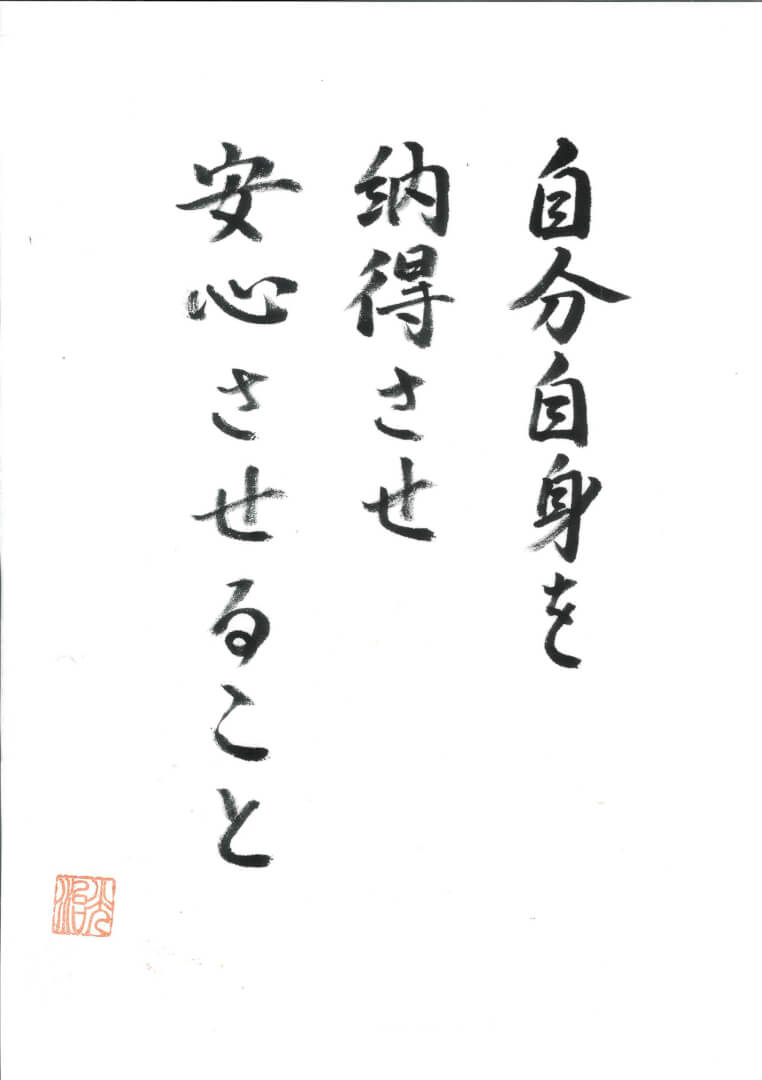 自分自身を
納得させ
安心させること